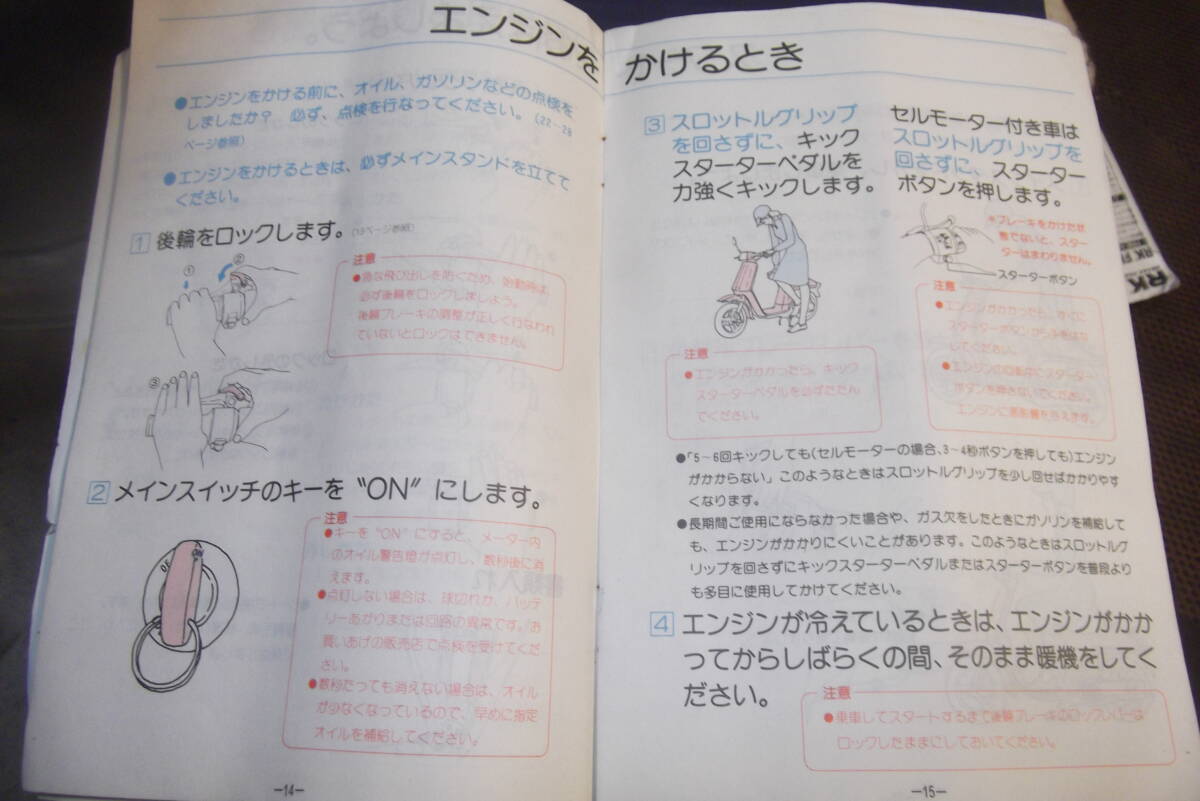 エンジンを かけるとき
●エンジンをかける前に、オイル、ガソリンなどの点検を
しましたか? 必ず、点検を行なってください。(22-28
ページ参照)
●エンジンをかけるときは、必ずメインスタンドを立てて
ください。
1 後輪をロックします。(13ページ参照)
① ②
③
注意
●急な飛び出しを防ぐため、始動時は
必ず後輪をロックしましょう。
後輪ブレーキの調整が正しく行なわれ
ていないとロックはできません。
2 メインスイッチのキーを〝ON〟にします。
ON
注意
●キーを〝ON〟にすると、メーター内
のオイル警告燈が点灯し、数秒後に消
えます。
●点灯しない場合は、球切れか、バッテ
リーあがりまたは回路の異常です。お
買いあげの販売店で点検を受けてくだ
さい。
●数秒たっても消えない場合は、オイル
が少なくなっているので、早めに指定
オイルを補給してください。
—14—
3 スロットルグリップ
を回さずに、キック
スターターペダルを
力強くキックします。
注意
●エンジンがかかったら、キック
スターターペダルを必ずたたん
でください。
セルモーター付き車は
スロットルグリップを
回さずに、スターター
ボタンを押します。
※ブレーキをかけた状
態でないと、スター
ターはまわりません。
スターターボタン
注意
●エンジンがかかったら、すぐに
スターターボタンから手をはな
してください。
●エンジンの回転中にスターター
ボタンを押さないでください。
エンジンに悪影響を与えます。
●「5~6回キックしても(セルモーターの場合、3~4秒ボタンを押しても)エンジン
がかからない」このようなときはスロットルグリップを少し回せばかかりやす
くなります。
●長期間ご使用にならなかった場合や、ガス欠をしたときにガソリンを補給して
も、エンジンがかかりにくいことがあります。このようなときはスロットルグ
リップを回さずにキックスターターペダルまたはスターターボタンを普段より
も多目に使用してかけてください。
4 エンジンが冷えているときは、エンジンがかか
ってからしばらくの間、そのまま暖機をしてく
ださい。
注意
●乗車してスタートするまで後輪ブレーキのロックレバーは
ロックしたままにしておいてください。
—15—
RK